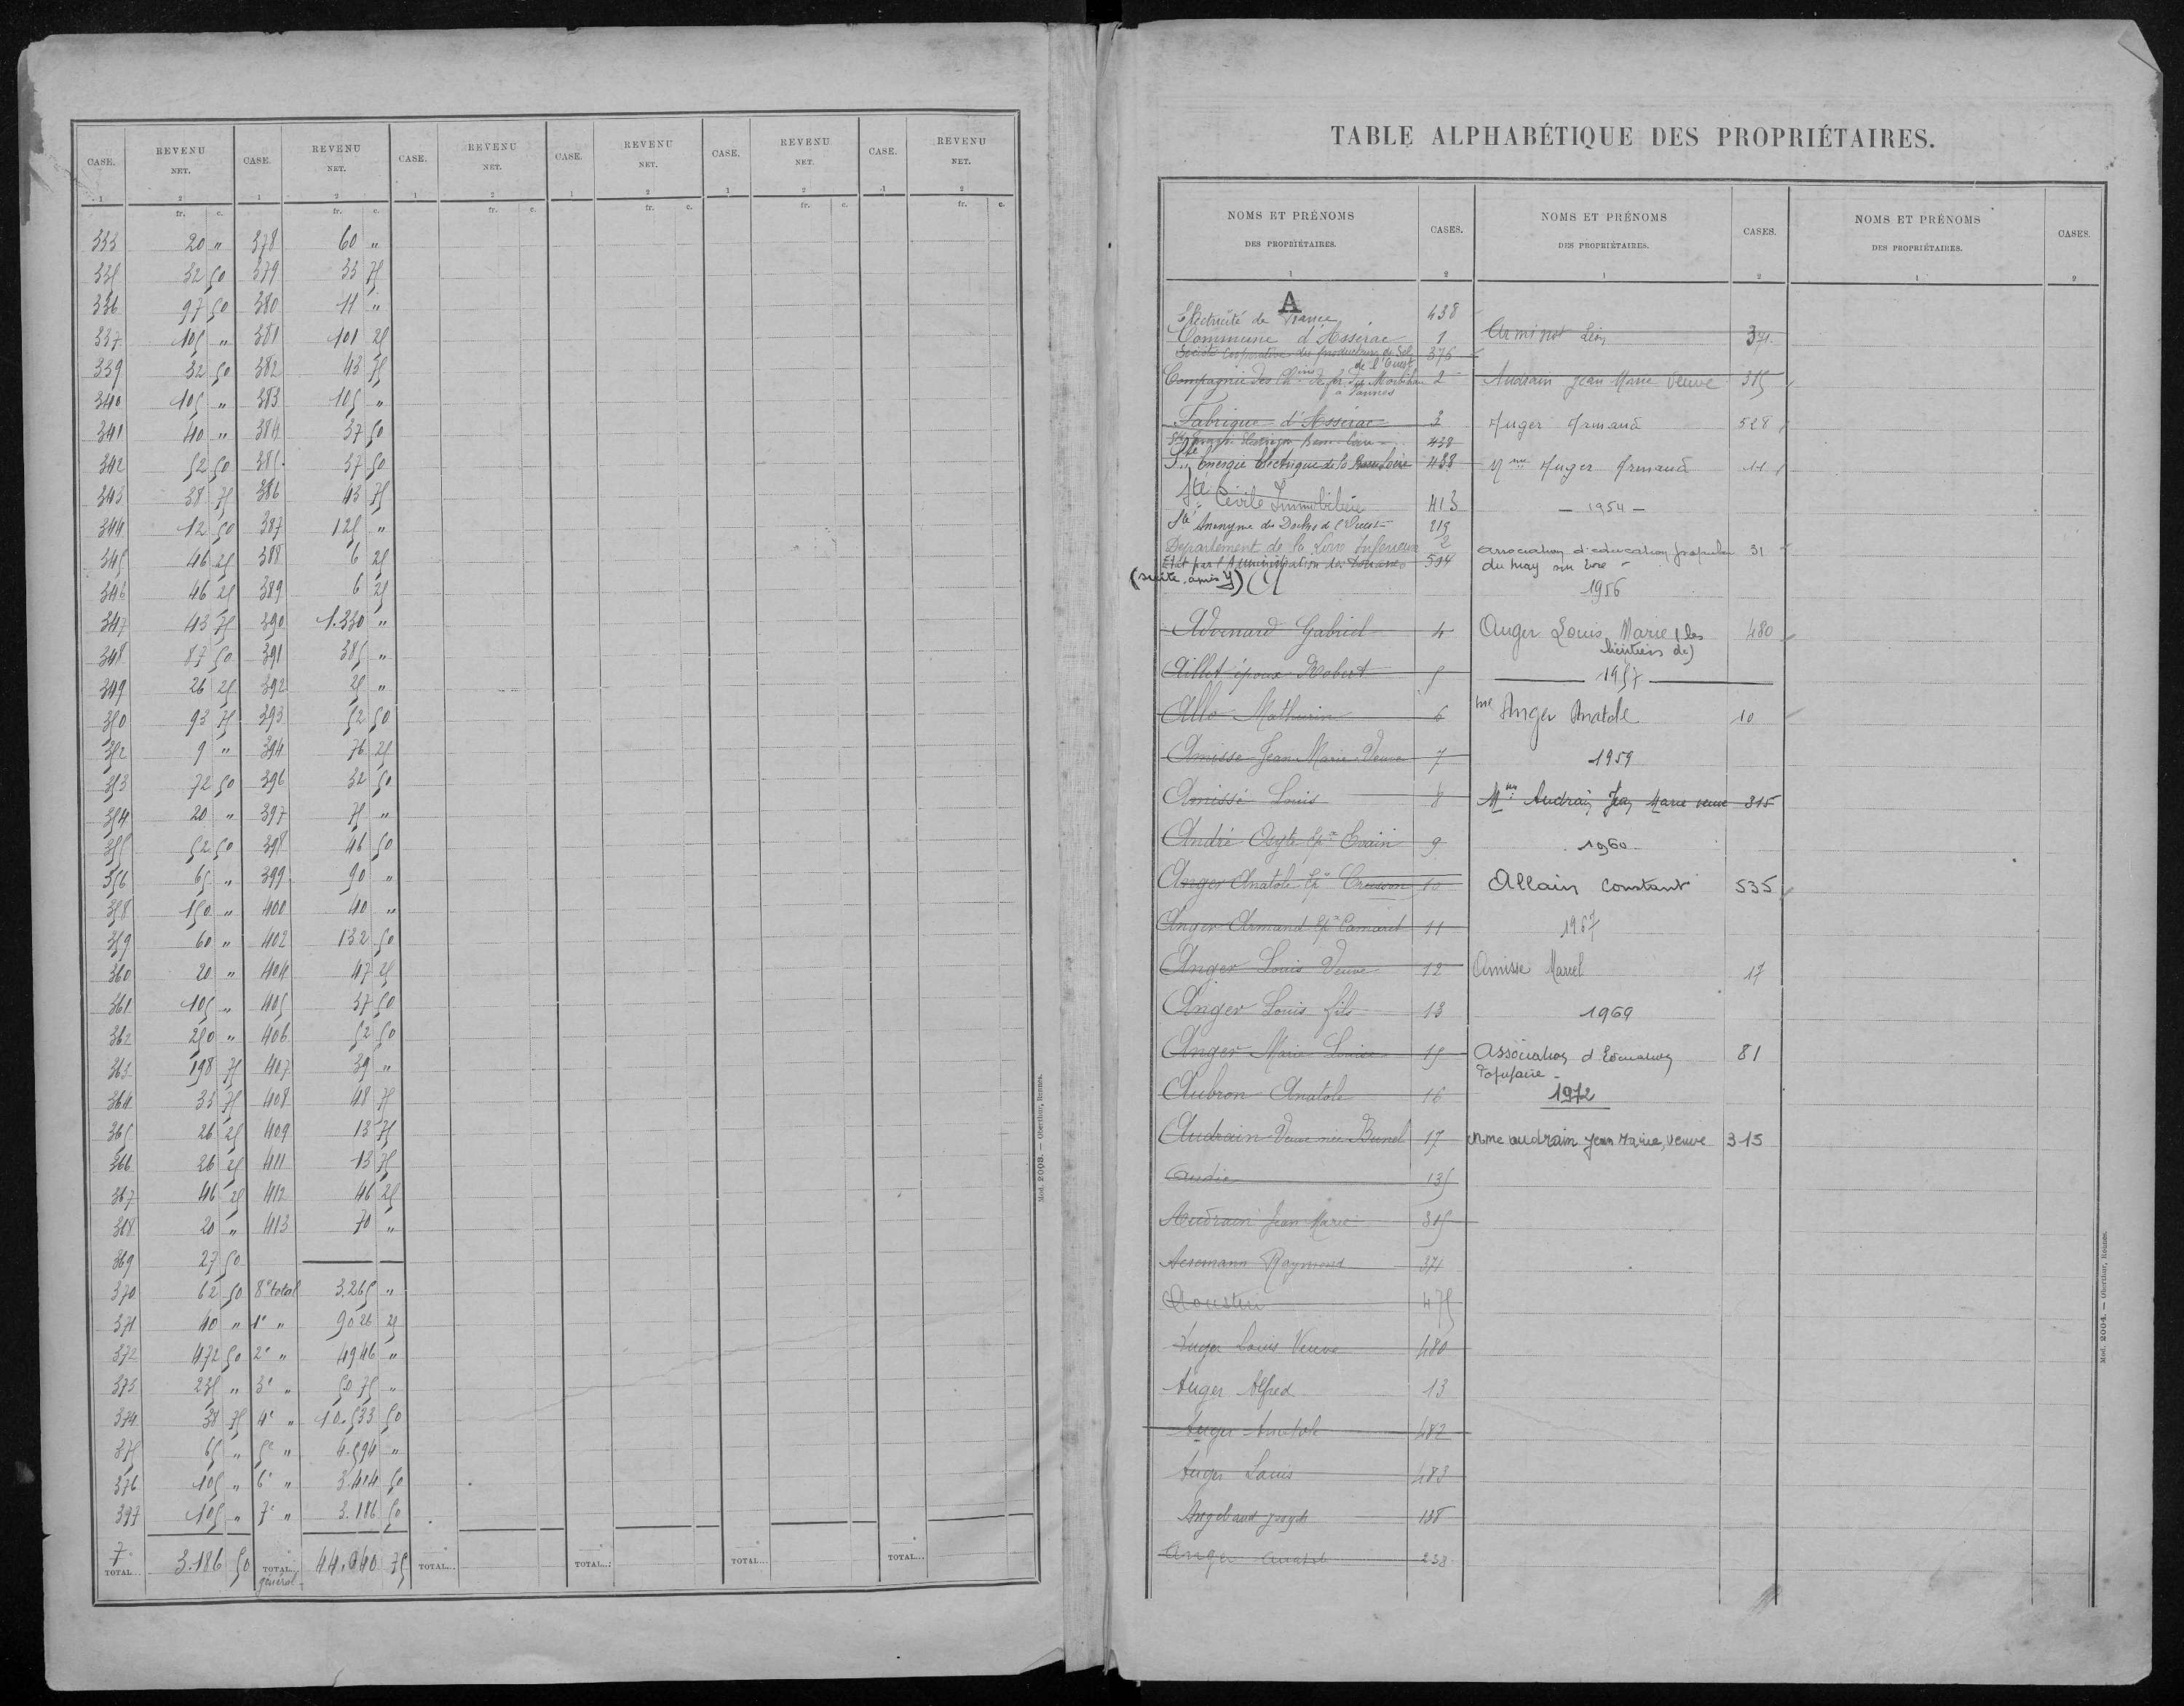 CASE. REVENU NET. CASE. REVENU NET. CASE. REVENU NET. CASE. REVENU NET. CASE. REVENU NET. CASE. REVENU NET.
1 2 1 2 1 2 1 2 1 2 1 2
fr. c. fr. c. fr. c. fr. c. fr. c. fr. c.
333 20 " 378 60 "
335 32 50 379 33 75
336 97 50 380 11 "
337 105 " 381 101 25
339 32 50 382 43 75
340 105 " 383 105 "
341 40 " 384 37 50
342 52 50 385 37 50
343 38 75 386 43 75
344 12 50 387 125 "
345 46 25 388 6 25
346 46 25 389 6 25
347 43 75 390 1.330 "
348 87 50 391 385 "
349 26 25 392 25 "
350 93 75 393 52 50
352 9 " 394 76 25
353 72 50 396 32 50
354 20 " 397 75 "
355 52 50 398 46 50
356 65 " 399 90 "
358 150 " 400 40 "
359 60 " 402 132 50
360 20 " 404 47 25
361 105 " 405 37 50
362 250 " 406 52 50
363 198 75 407 39 "
364 33 75 408 48 75
365 26 25 409 13 75
366 26 25 411 13 75
367 46 25 412 46 25
368 20 " 413 70 "
369 27 50
370 62 50 8e total 3.265 "
371 40 " 1e " 9026 25
372 472 50 2e " 4946 "
373 235 " 3e " 5075 "
374 38 75 4e " 10.533 50
375 65 " 5e " 4.594 "
376 105 " 6e " 3.414 50
397 105 " 7e " 3.186 50
7e TOTAL... 3.186 50 TOTAL... général 44.040 75 TOTAL... TOTAL... TOTAL... TOTAL...
Mod. 2003. — Oberthur, Rennes.
TABLE ALPHABÉTIQUE DES PROPRIÉTAIRES.
NOMS ET PRÉNOMS DES PROPRIÉTAIRES. CASES. NOMS ET PRÉNOMS DES PROPRIÉTAIRES. CASES. NOMS ET PRÉNOMS DES PROPRIÉTAIRES. CASES.
1 2 1 2 1 2
A
Electricité de France 438
Commune d'Assérac 1
Société Coopérative des producteurs de Sel de l'Ouest 376
Compagnie des Ch. ins de fer du Morbihan à Vannes 2
Fabrique d'Assérac 3
438
Sté Energie Electrique de la Basse Loire 438
Sté Civile Immobilière 413
Sté Anonyme des Docks de l'Ouest 219
Département de la Loire Inférieure 2
Etat par l'Administration des Douanes 504
(suite après Y) A
Advenard Gabriel 4
Aillet époux Robert 5
Allo Mathurin 6
Amisse Jean Marie Veuve 7
Amissé Louis 8
André Agte Ep. Evain 9
Anger Anatole Ep. Crusson 10
Anger Armand Ep. Camaret 11
Anger Louis Veuve 12
Anger Louis fils 13
Anger Marie Louise 15
Aubron Anatole 16
Audrain Veuve née Burel 17
Audic 135
Audrain Jean Marie 315
Acremann Raymond 371
Aoustin 475
Anger Louis Veuve 480
Auger Alfred 13
Auger Anatole 482
Auger Louis 483
Angebaud Joseph 138
Anger Anatole 238
Arminot Léon 371
Audrain Jean Marie Veuve 315
Auger Armand 528
Mme Auger Armand 11
— 1954 —
Association d'éducation populaire 31
du may sur Evre
1956
Auger Louis Marie (les
héritiers de) 480
1957
Mme Anger Anatole 10
1959
Mme Audrain Jean Marie veuve 315
1960
Allain Constant 535
1967
Amisse Marcel 17
1969
Association d'Education 81
Populaire
1972
Mme audrain Jean Marie, Veuve 315
Mod. 2004. — Oberthur, Rennes.